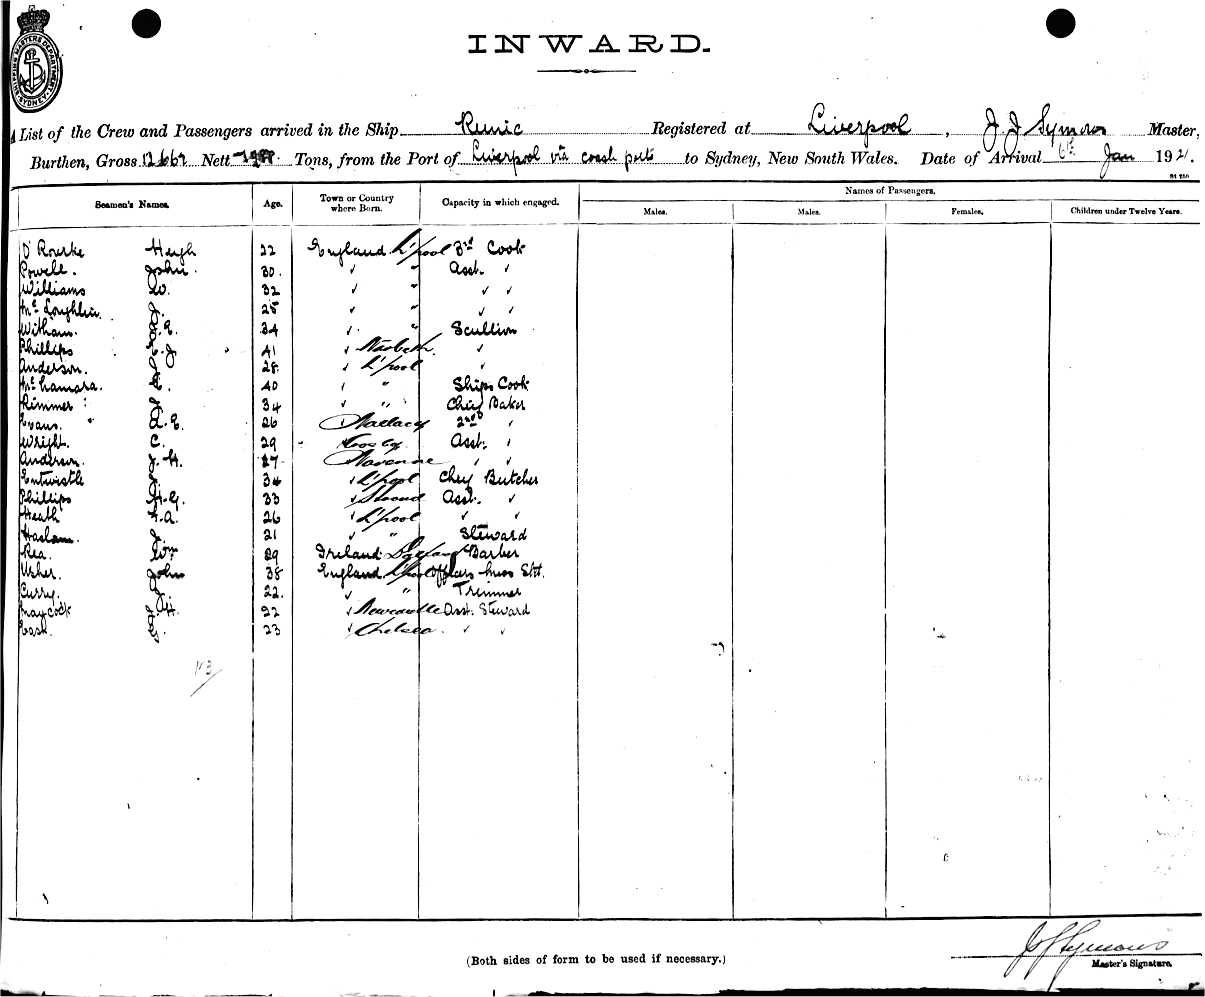 SHIPPING MASTERS DEPARTMENT SYDNEY
INWARD.
List of the Crew and Passengers arrived in the Ship Runic Registered at Liverpool, J. J Symons Master,
Burthen, Gross 12662 Nett Tons, from the Port of Liverpool via coast ports to Sydney, New South Wales. Date of Arrival 6th Jan 1921.
Names of Passengers.
Seamen's Names. Age. Town or Country where Born. Capacity in which engaged. Males. Males. Females. Children under Twelve Years.
O'Rourke Hugh 22 England L'pool 3rd Cook
Powell. John. 30. " Asst.
Williams W. 32 "
McLoughlin. J. 25 "
Witham. 34 " Scullion
Phillips E. J 41
Anderson. J 28. L'pool
McNamara. 40 " Ships Cook
Rimmer J 34 " Chief Baker
Evans. A. E. 26 2nd
Wright. C. 29 Crosby Asst.
Anderson. J. H. 27
Entwistle J. 34 L'pool Chef Butcher
Phillips H. G. 33 Stroud Asst.
Heath A. 26 L'pool
Haslam. J. 21 " Steward
Rea. Wm 29 Ireland Barber
Usher. John 38 England L'pool Officers Mess Std.
Curry. J. 22. " Trimmer
Maycock J. H. 22 Newcastle Asst. Steward
East. 23 Chelsea
(Both sides of form to be used if necessary.)
J J Symons
Master's Signature.